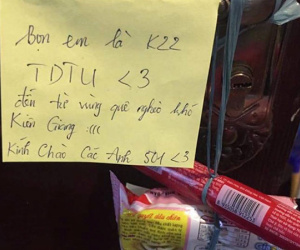 Bọn em là K22
TDTU <3
đến từ vùng quê nghèo khó
Kiên Giang :(((
Kính Chào Các Anh 501 <3